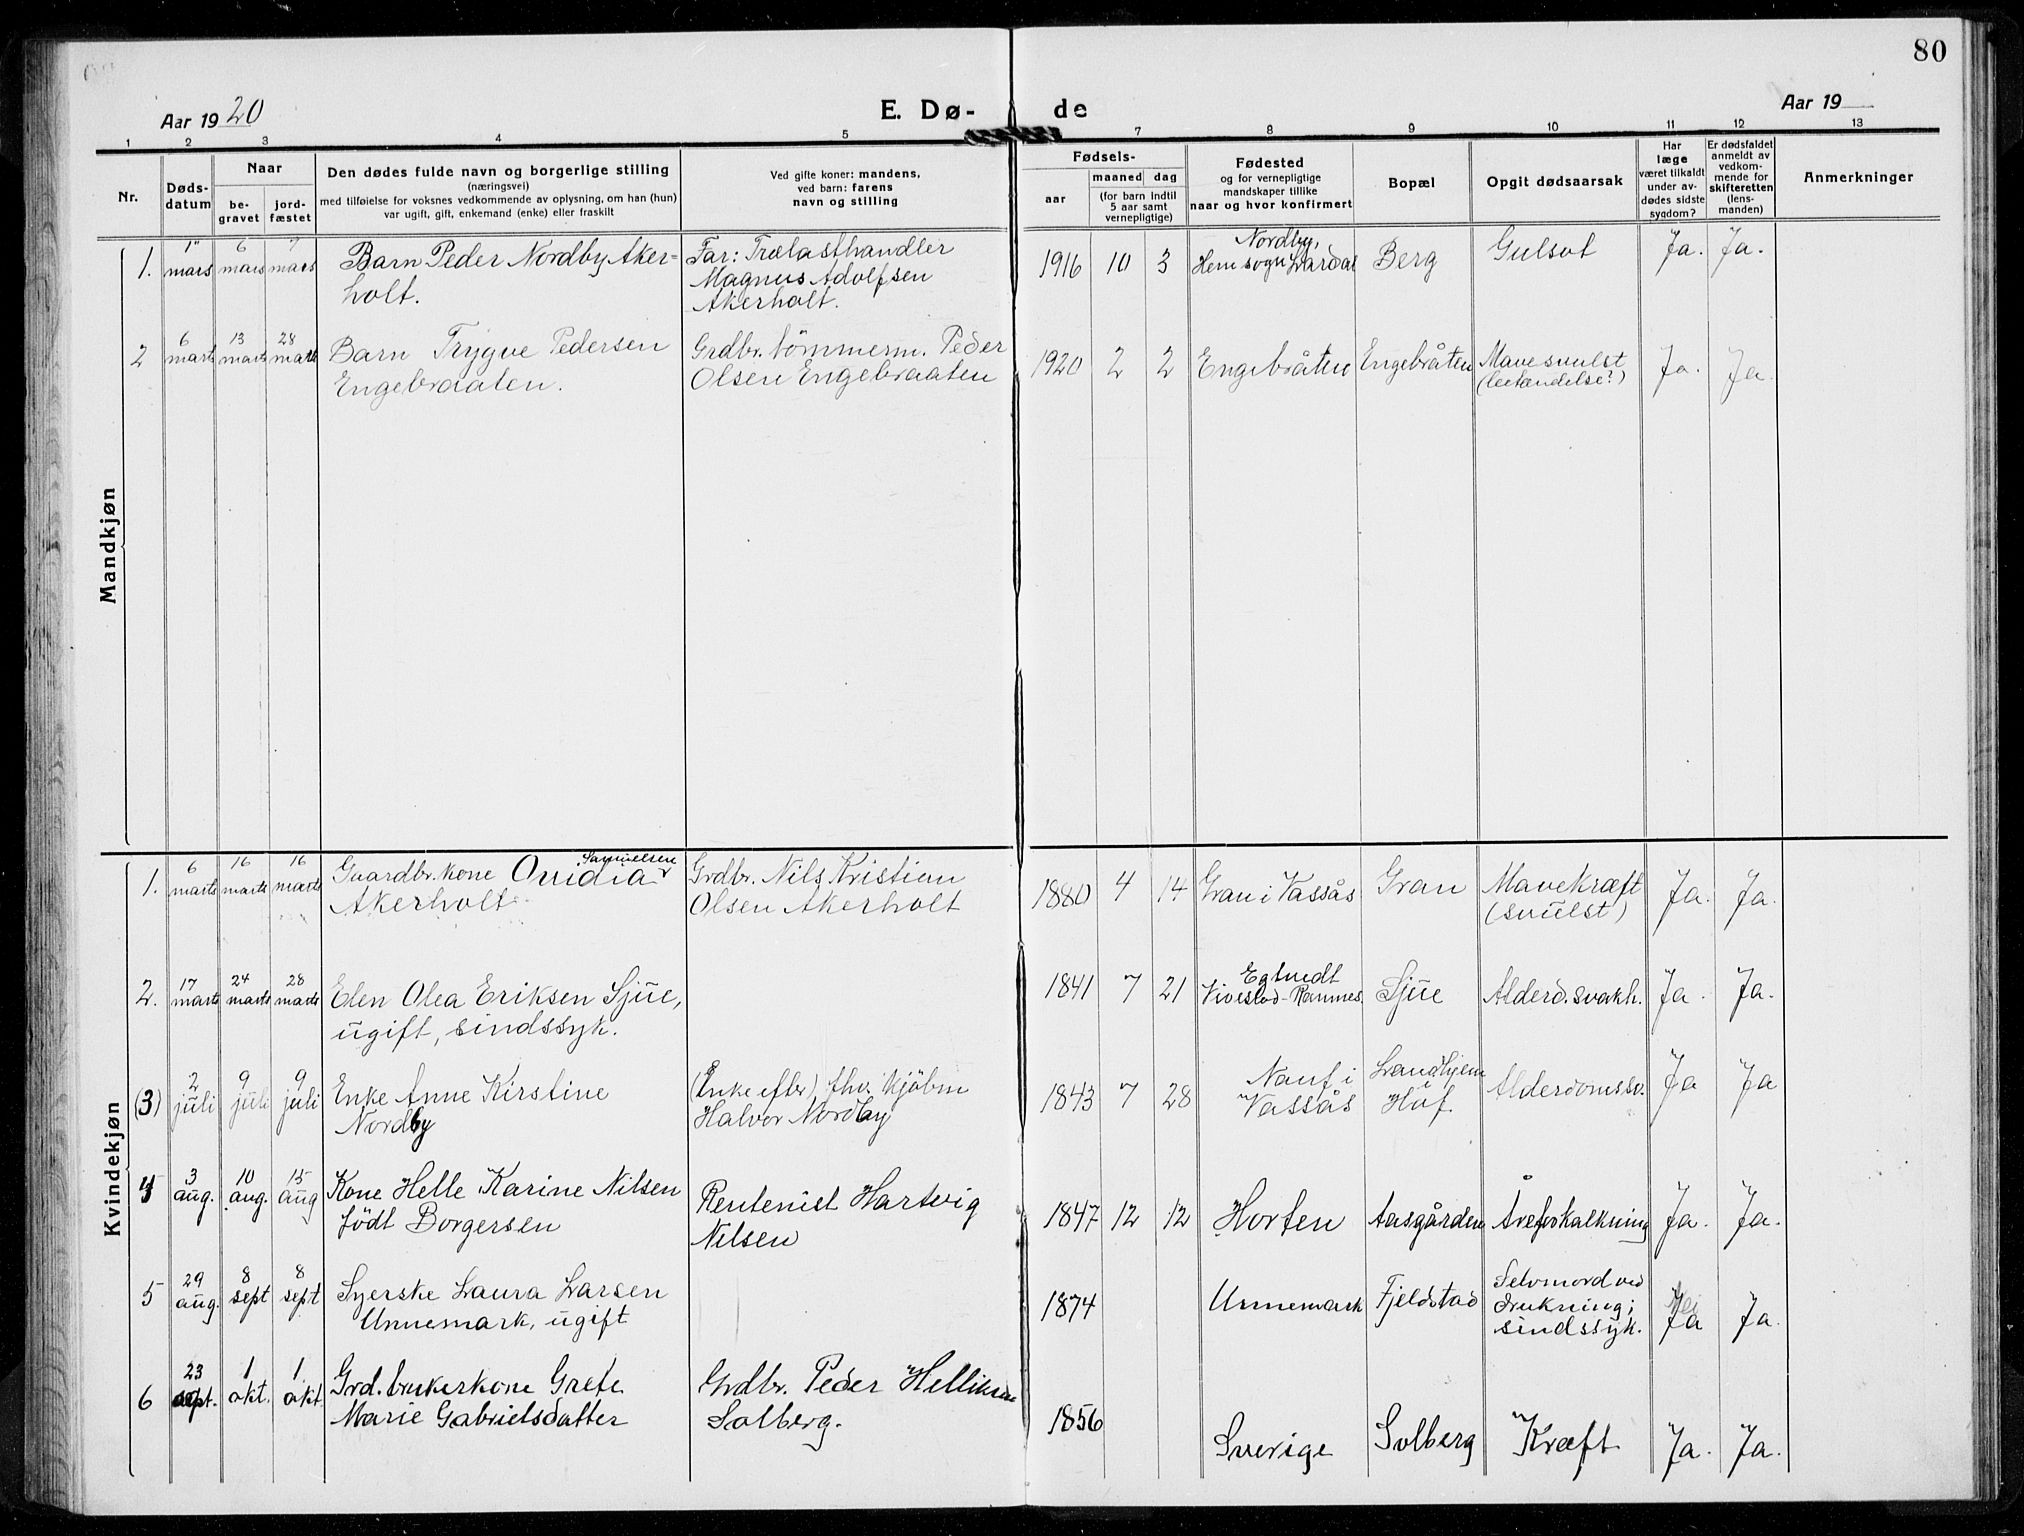 80
Aar 1920
E. Dø-
de
Aar 19
1 2 3 4 5 7 8 9 10 11 12 13
Nr.
Døds-
datum
Naar
be-
gravet
jord-
fæstet
Den dødes fulde navn og borgerlige stilling
(næringsvei)
med tilføielse for voksnes vedkommende av oplysning, om han (hun)
var ugift, gift, enkemand (enke) eller fraskilt
Ved gifte koner: mandens,
ved barn: farens
navn og stilling
Fødsels-
aar
maaned dag
(for barn indtil
5 aar samt
vernepligtige)
Fødested
og for vernepligtige
mandskaper tillike
naar og hvor konfirmert
Bopæl
Opgit dødsaarsak
Har
læge
været tilkaldt
under av-
dødes sidste
sygdom?
Er dødsfaldet
anmeldt av
vedkom-
mende for
skifteretten
(lens-
manden)
Anmerkninger
Mandkjøn
1.
1
mars
6
mars
7
mars
Barn Peder Nordby Aker-
holt.
Far: Trælasthandler
Magnus Adolfsen
Akerholt.
1916 10 3
Nordby,
Hem sogn Lardal
Berg
Gulsot
Ja. Ja.
2
6
marts
13
marts
28
marts
Barn Trygve Pedersen
Engebraaten.
Grdbr. tömmerm. Peder
Olsen Engebraaten
1920 2 2
Engebråten
Engebråten
Mavesvulst
(betændelse?)
Ja. Ja.
Kvindekjøn
1.
6
marts
16
marts
16
marts
Samuelsen
Guardbr. kone Ovidia
Akerholt
Grdbr. Nils Kristian
Olsen Akerholt
1880 4 14
Gran i Vassås
Gran
Mavekræft
(svulst)
Ja. Ja.
2.
17
marts
24
marts
28
marts
Elen Olea Eriksen Sjue,
ugift, sindssyk.
1841 7 21
Vivestad-Ramnes.
Sjue
Alderd.svakh.
Ja. Ja.
(3)
2
juli
9
juli
9
juli
Enke Anne Kirstine
Nordby
(Enke efter) fhv. kjöbm
Halvor Nordby
1843 7 28
Nauf i
Vassås
Landhjem
i
Hof.
Alderdomssv.
Ja Ja
4
3
aug.
10
aug.
15
aug
Kone Helle Karine Nilsen
födt Borgersen
Rentenist Hartvig
Nilsen
1847 12 12
Horten
Aasgården
Åreforkalkning
Ja. Ja.
5
29
aug.
8
sept
8
sept
Syerske Laura Larsen
Unnemark, ugift
1874
Unnemark
Fjeldstad
Selvmord ved
drukning i
sindssyk.
Nei
Ja Ja.
6
23
sept.
1
okt.
1
okt.
Grd.brukerkone Grete
Marie Gabrielsdatter
Grdbr. Peder Helliksen
Solberg.
1856
Sverige
Solberg
Kræft
Ja. Ja.